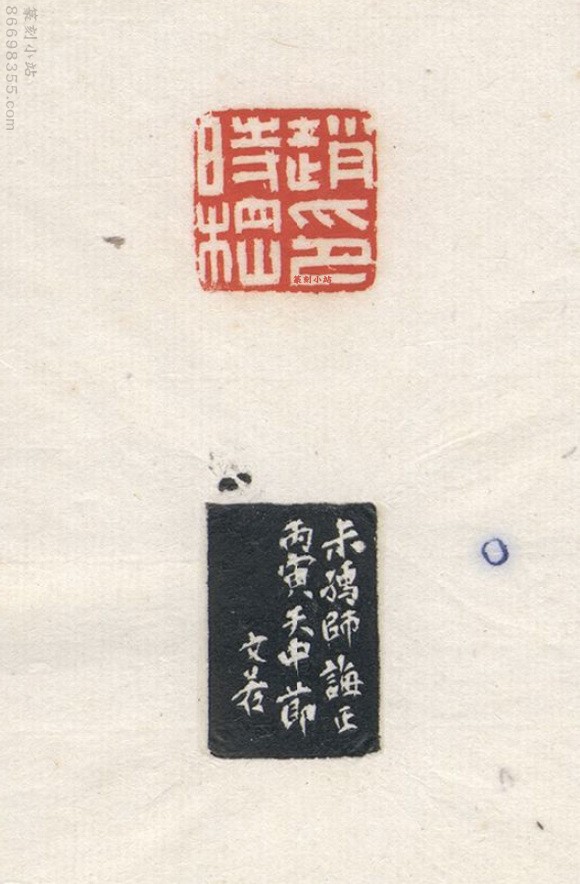 篆刻小站
86698355.com
趙印
時棡
篆刻小站
尗孺師誨正
丙寅天中節
文若